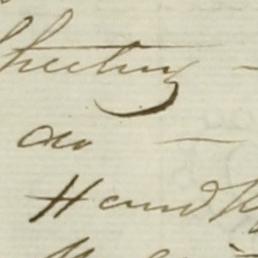 Sheeting -
do -
Handk